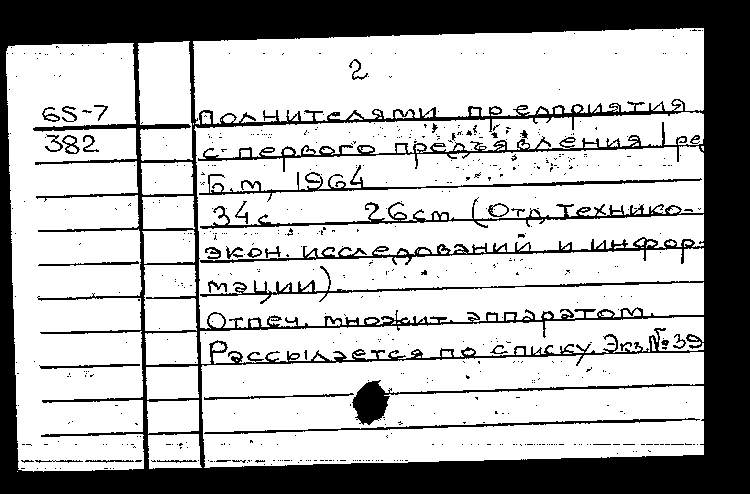 2
65-7 полнителями предприятия
382 с первого предъявления. [ре
Б.м, 1964
34с 26cm. (Отд. технико-
экон. исследований и инфор-
мации).
Отпеч. множит. аппаратом.
Рассылается по списку. Экз.№39